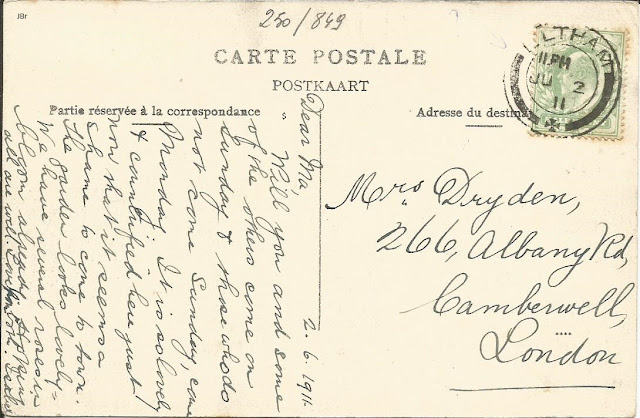 JBr
250/849
CARTE POSTALE
POSTKAART
Partie réservée à la correspondance
Adresse du destina
ELTHAM
11.PM
JU 2
11
2.6.1911
Dear Ma,
Will you and some
of the others come on
Sunday & those who do
not come Sunday, come
Monday. It is so lovely
& countrified here just
now that it seems a
shame to come to town.
The garden looks lovely
We have several roses in
bloom already. Hoping
all are well.
Mrs Dryden,
266, Albany Rd,
Camberwell,
London